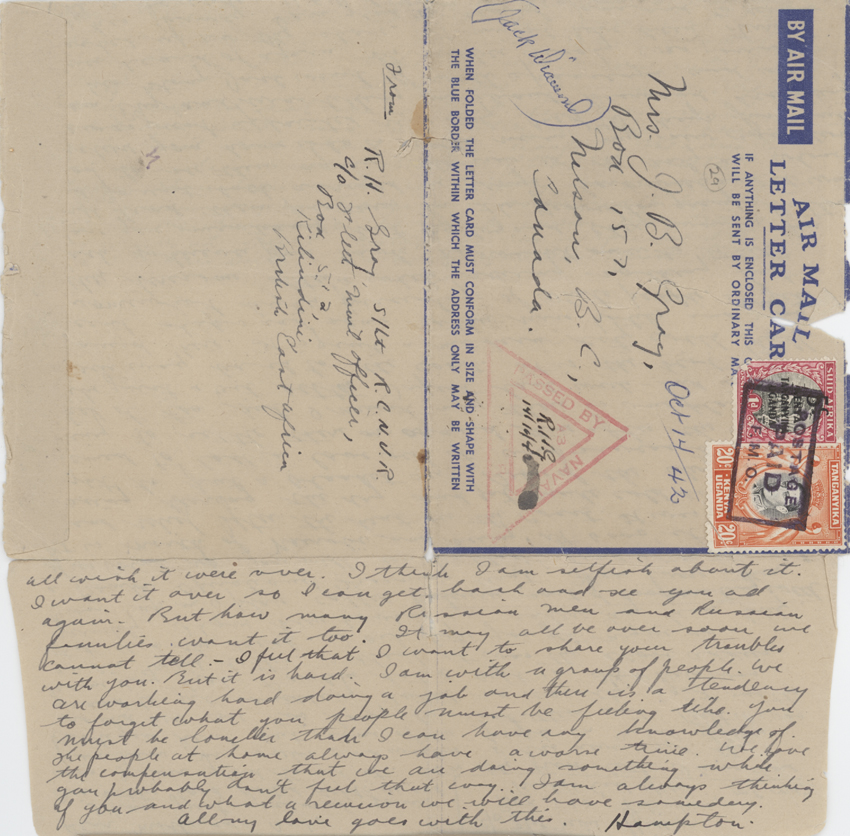 BY AIR MAIL
AIR MAIL
LETTER CAR
IF ANYTHING IS ENCLOSED THIS C
WILL BE SENT BY ORDINARY MA
29
Mrs. J. B. Gray,
Box 157,
Nelson, B.C.,
Canada.
Oct 14/42
(Jack
WHEN FOLDED THE LETTER CARD MUST CONFORM IN SIZE AND SHAPE WITH
THE BLUE BORDER WITHIN WHICH THE ADDRESS ONLY MAY BE WRITTEN
PASSED BY
NAVAL
R.H.G
14/10/42
SUID-AFRIKA
1d
TANGANYIKA
KENYA
UGANDA
20c
20c
POSTAGE
PAID
E.M.O.
From
R.H. Gray S/Lt R.C.N.V.R.
c/o Fleet Mail Officer,
Box 512
Kilindini
British East Africa
all wish it were over. I think I am selfish about it.
I want it over so I can get back and see you all
again. But how many Russian men and Russian
families want it too. It may all be over soon we
cannot tell – I feel that I want to share your troubles
with you. But it is hard. I am with a group of people. We
are working hard doing a job and there is a tendency
to forget what you people must be feeling like. You
must be lonelier than I can have any knowledge of.
The people at home always have a worse time. We have
the compensation that we are doing something while
you probably don't feel that way. I am always thinking
of you and what a reunion we will have someday.
All my love goes with this. Hampton.